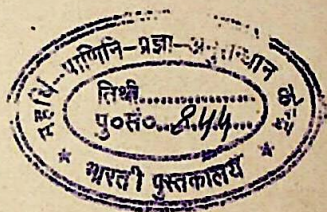 महर्षि-पाणिनि-प्रज्ञा-अनुसन्धान केन्द्र
तिथी..............
पु०सं०..844......
★ भारती पुस्तकालय ★